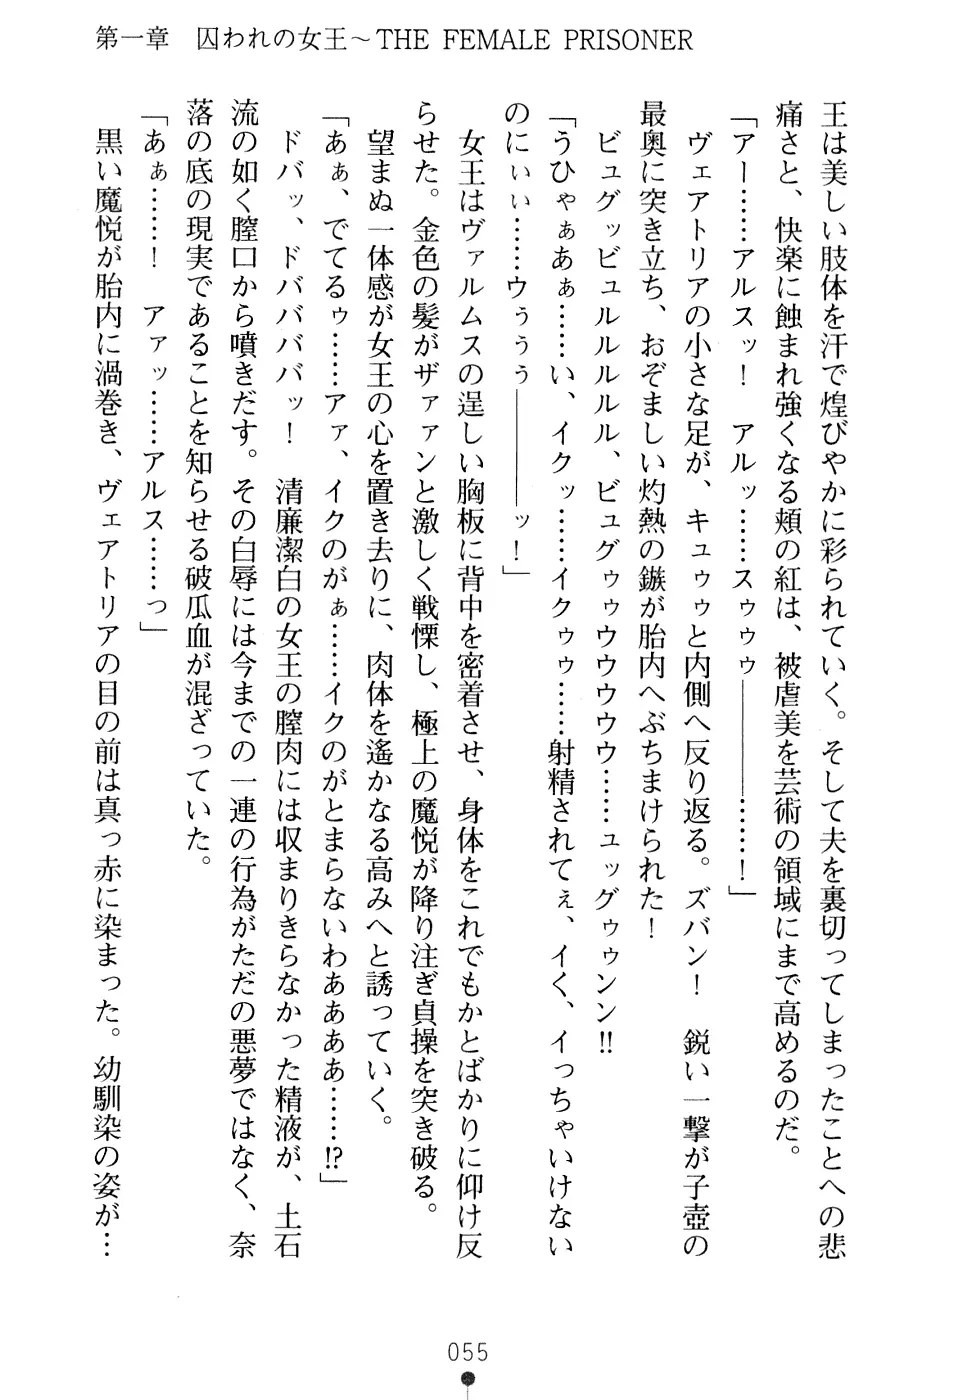 第一章　囚われの女王～THE FEMALE PRISONER
王は美しい肢体を汗で煌びやかに彩られていく。そして夫を裏切ってしまったことへの悲
痛さと、快楽に蝕まれ強くなる頬の紅は、被虐美を芸術の領域にまで高めるのだ。
「アー……アルスッ！　アルッ……スゥゥゥ――――……！」
ヴェアトリアの小さな足が、キュゥゥと内側へ反り返る。ズバン！　鋭い一撃が子壺の
最奥に突き立ち、おぞましい灼熱の鏃が胎内へぶちまけられた！
ビュグッビュルルルル、ビュグゥゥウウウウウ……ュッグゥゥンン!!
「うひゃぁあぁ……い、イクッ……イクゥゥ……射精されてぇ、イく、イっちゃいけない
のにぃぃ……ウぅぅぅ――――ッ！」
女王はヴァルムスの逞しい胸板に背中を密着させ、身体をこれでもかとばかりに仰け反
らせた。金色の髪がザァァンと激しく戦慄し、極上の魔悦が降り注ぎ貞操を突き破る。
望まぬ一体感が女王の心を置き去りに、肉体を遙かなる高みへと誘っていく。
「あぁ、でてるゥ……アァ、イクのがぁ……イクのがとまらないわあああぁ……!?」
ドバッ、ドバババッ！　清廉潔白の女王の膣肉には収まりきらなかった精液が、土石
流の如く膣口から噴きだす。その白辱には今までの一連の行為がただの悪夢ではなく、奈
落の底の現実であることを知らせる破瓜血が混ざっていた。
「あぁ……！　アァッ……アルス……っ」
黒い魔悦が胎内に渦巻き、ヴェアトリアの目の前は真っ赤に染まった。幼馴染の姿が…
055